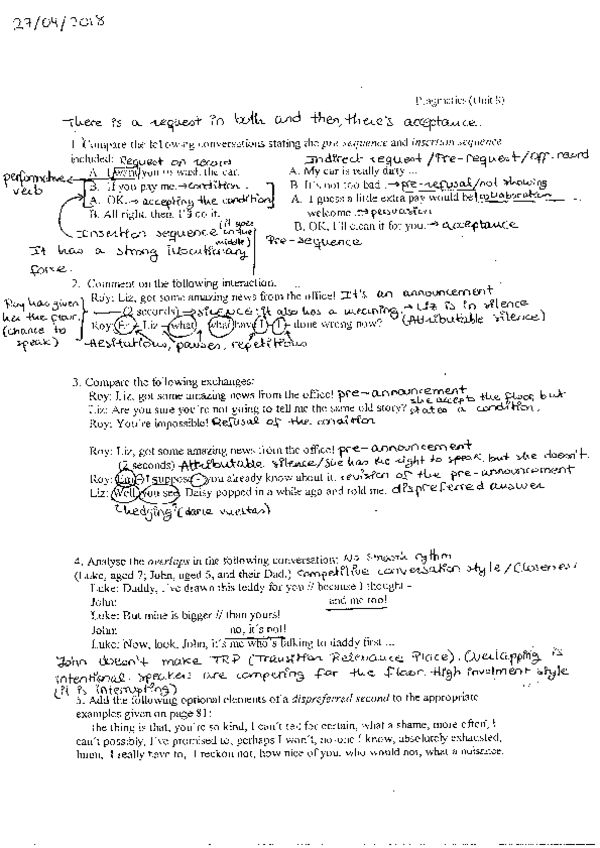 27/04/2018
Pragmatics (Unit 8)
There is a request in both and then, there's acceptance.
1. Compare the following conversations stating the pre sequence and insertion sequence
included: Request on record
Indirect request / Pre-request / off record
performative verb
A. I want you to wash the car.
A. My car is really dirty ...
B. If you pay me. → condition.
B. It's not too bad. → pre-refusal / not showing
A. OK. → accepting the condition
A. I guess a little extra pay would be collaboration
welcome → persuasion
B. All right, then. I'll do it.
B. OK, I'll clean it for you. → acceptance
Insertion sequence (it goes in the middle)
Pre-sequence
It has a strong illocutionary
force.
2. Comment on the following interaction.
Roy has given
her the floor.
(chance to
speak)
Roy: Liz, got some amazing news from the office! It's an announcement
(2 seconds) → silence; it also has a meaning. → Liz is in silence
(Attributable silence)
Roy: Er - Liz - what, what have I - I - done wrong now?
Hesitations, pauses, repetitions
3. Compare the following exchanges:
Roy: Liz, got some amazing news from the office! pre-announcement
Liz: Are you sure you're not going to tell me the same old story? she accepts the floor but
states a condition.
Roy: You're impossible! Refusal of the condition
Roy: Liz, got some amazing news from the office! pre-announcement
(2 seconds) Attributable silence / she has the right to speak, but she doesn't.
Roy: Em - I suppose - you already know about it. revision of the pre-announcement
Liz: Well, you see, Daisy popped in a while ago and told me. dispreferred answer
hedging (darle vueltas)
4. Analyse the overlaps in the following conversation: No smooth rythm
(Luke, aged 7; John, aged 5, and their Dad.) Competitive conversation style / Closeness
Luke: Daddy, I've drawn this teddy for you // because I thought -
John: and me too!
Luke: But mine is bigger // than yours!
John: no, it's not!
Luke: Now, look, John, it's me who's talking to daddy first ...
John doesn't make TRP (Transition Relevance Place). Overlapping is
intentional. Speakers are competing for the floor. High involment style
(it is interrupting)
5. Add the following optional elements of a dispreferred second to the appropriate
examples given on page 81:
the thing is that, you're so kind, I can't tell for certain, what a shame, more often, I
can't possibly, I've promised to, perhaps I won't, no-one I know, absolutely exhausted,
hmm, I really have to, I reckon not, how nice of you, who would not, what a nuisance.